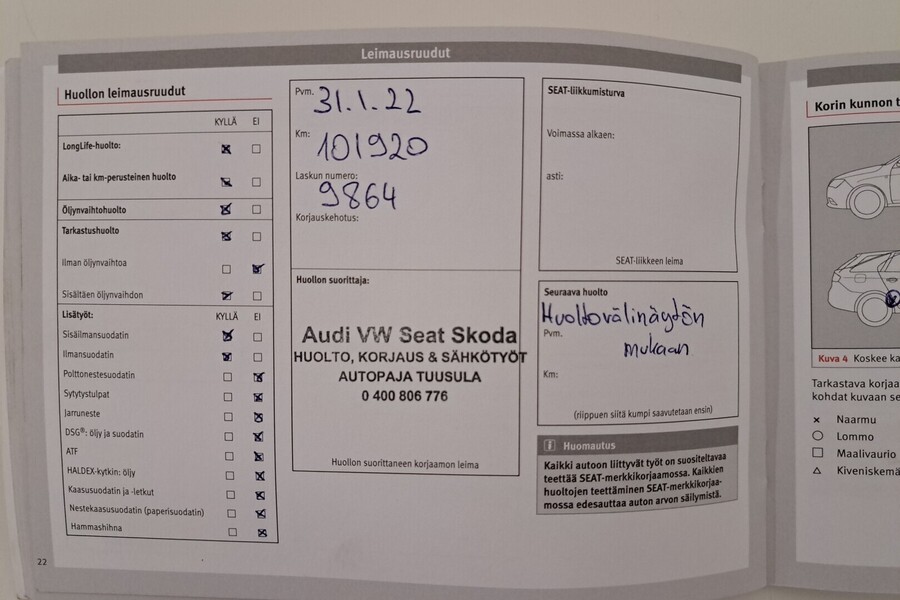 Leimausruudut
Huollon leimausruudut
KYLLÄ EI
LongLife-huolto:
Aika- tai km-perusteinen huolto
Öljynvaihtohuolto
Tarkastushuolto
Ilman öljynvaihtoa
Sisältäen öljynvaihdon
Lisätyöt: KYLLÄ EI
Sisäilmansuodatin
Ilmansuodatin
Polttonestesuodatin
Sytytystulpat
Jarruneste
DSG®: öljy ja suodatin
ATF
HALDEX-kytkin: öljy
Kaasusuodatin ja -letkut
Nestekaasusuodatin (paperisuodatin)
Hammashihna
22
Pvm. 31.1.22
Km: 101920
Laskun numero:
9864
Korjauskehotus:
Huollon suorittaja:
Audi VW Seat Skoda
HUOLTO, KORJAUS & SÄHKÖTYÖT
AUTOPAJA TUUSULA
0 400 806 776
Huollon suorittaneen korjaamon leima
SEAT-liikkumisturva
Voimassa alkaen:
asti:
SEAT-liikkeen leima
Seuraava huolto
Huoltovälinäytön
Pvm. mukaan
Km:
(riippuen siitä kumpi saavutetaan ensin)
Huomautus
Kaikki autoon liittyvät työt on suositeltavaa
teettää SEAT-merkkikorjaamossa. Kaikkien
huoltojen teettäminen SEAT-merkkikorjaa-
mossa edesauttaa auton arvon säilymistä.
Korin kunnon
Kuva 4 Koskee
Tarkastava
kohdat kuvaan
Naarmu
Lommo
Maalivaurio